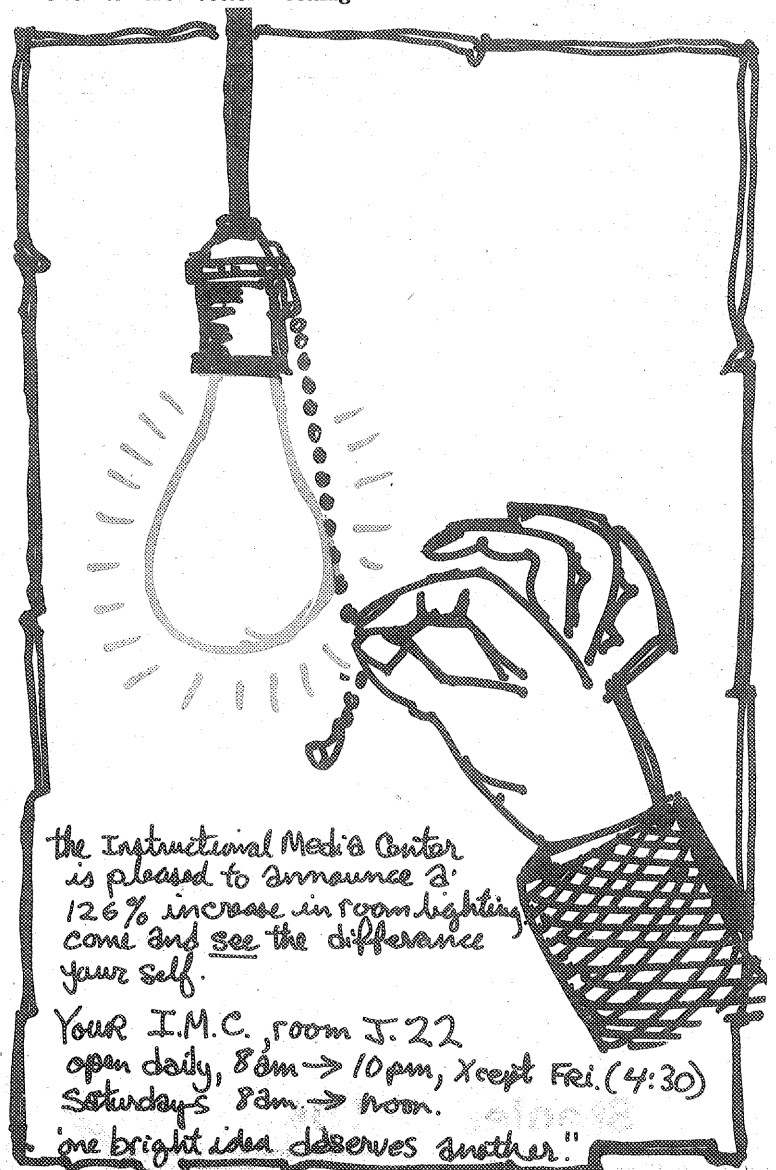 the Instructional Media Center
is pleased to announce a
126% increase in room lighting.
come and see the differance
your self.
Your I.M.C., room J.22
open daily, 8am → 10pm, Xcept Fri. (4:30)
Saturdays 8am → noon.
"one bright idea deserves another!"